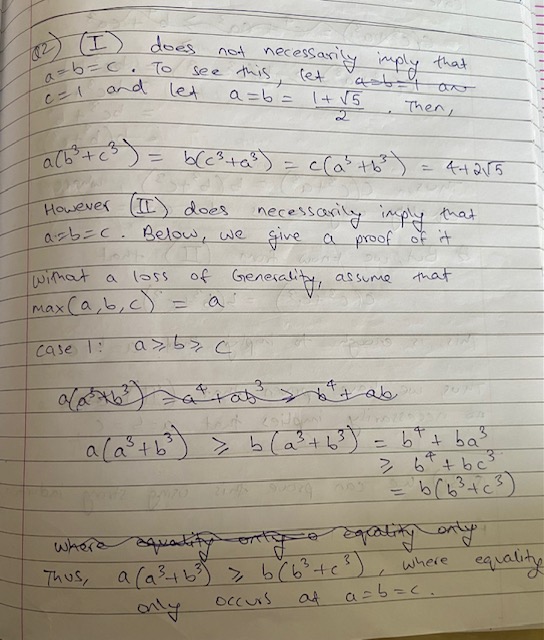 Q2) (I) does not necessarily imply that
a=b=c. To see this, let a=b=1 an
c=1 and let a=b= (1+√5)/2 . Then,
a(b³+c³) = b(c³+a³) = c(a³+b³) = 4+2√5
However (II) does necessarily imply that
a=b=c. Below, we give a proof of it
Without a loss of Generality, assume that
max(a,b,c) = a
case 1: a⩾b⩾c
a(a³+b³) = a⁴+ab³ ⩾ b⁴+ab
a(a³+b³) ⩾ b(a³+b³) = b⁴+ba³
⩾ b⁴+bc³
= b(b³+c³)
where equality only o equality only
Thus, a(a³+b³) ⩾ b(b³+c³), where equality
only occurs at a=b=c.